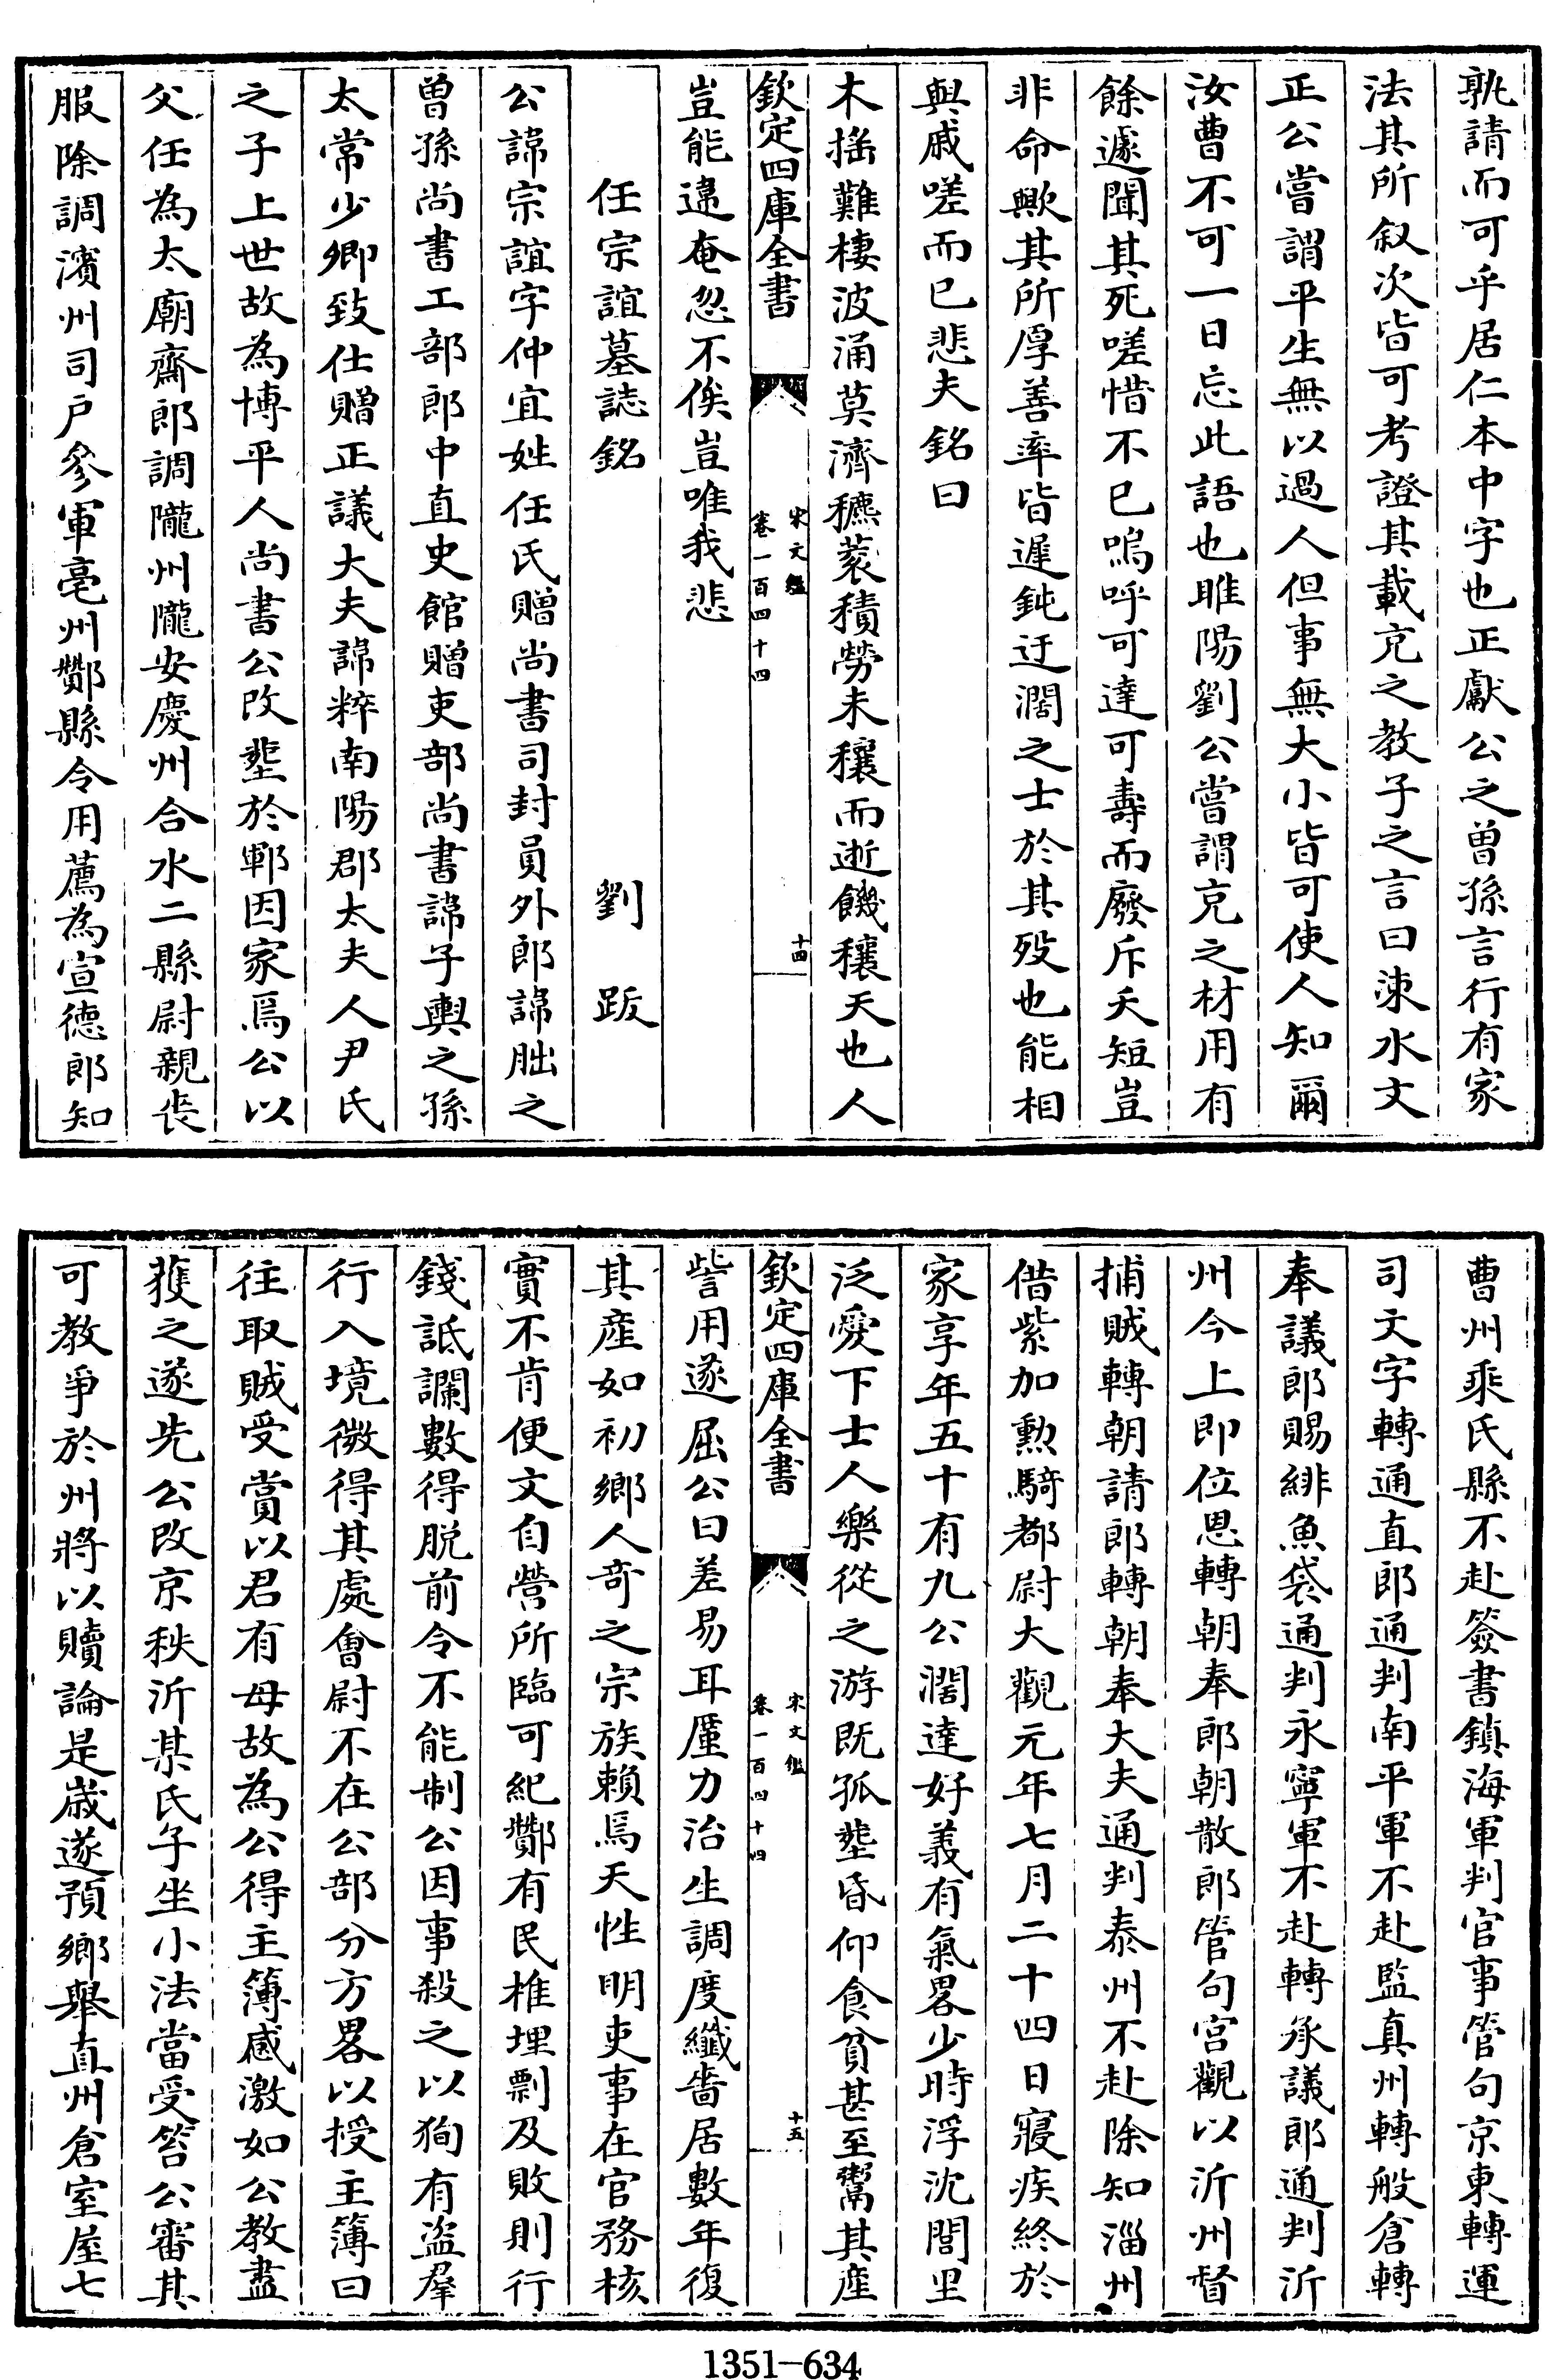 孰請而可乎居仁本中字也正獻公之曽孫言行有家
法其所叙次皆可考證其載克之教子之言曰涑水文
正公嘗謂平生無以過人但事無大小皆可使人知爾
汝曹不可一日忘此語也睢陽劉公嘗謂克之材用有
餘遽聞其死嗟惜不已嗚呼可達可壽而廢斥夭短豈
非命歟其所厚善率皆遲鈍迂濶之士於其歿也能相
與戚嗟而已悲夫銘曰
木摇難棲波涌莫濟穮蓘積勞未穰而逝饑穰天也人
欽定四庫全書
宋文鑑
卷一百四十四
十四
豈能違奄忽不俟豈唯我悲
任宗誼墓誌銘 劉跂
公諱宗誼字仲宜姓任氏贈尚書司封員外郎諱朏之
曽孫尚書工部郎中直史館贈吏部尚書諱子輿之孫
太常少卿致仕贈正議大夫諱粹南陽郡太夫人尹氏
之子上世故為博平人尚書公改塟於鄆因家焉公以
父任為太廟齋郎調隴州隴安慶州合水二縣尉親喪
服除調濱州司戶參軍亳州酇縣令用薦為宣德郎知
曹州乘氏縣不赴簽書鎮海軍判官事管句京東轉運
司文字轉通直郎通判南平軍不赴監真州轉般倉轉
奉議郎賜緋魚袋通判永寧軍不赴轉承議郎通判沂
州今上即位恩轉朝奉郎朝散郎管句宫觀以沂州督
捕賊轉朝請郎轉朝奉大夫通判泰州不赴除知淄州
借紫加勲騎都尉大觀元年七月二十四日寢疾終於
家享年五十有九公濶達好義有氣畧少時浮沈閭里
泛愛下士人樂從之游既孤塟昏仰食貧甚至鬻其産
欽定四庫全書
宋文鑑
卷一百四十四
十五
訾用遂屈公曰差易耳厪力治生調度纎嗇居數年復
其産如初鄉人竒之宗族賴焉天性明吏事在官務核
實不肯便文自營所臨可紀酇有民椎埋剽及敗則行
錢詆讕數得脱前令不能制公因事殺之以狥有盗羣
行入境微得其處會尉不在公部分方畧以授主簿曰
往取賊受賞以君有母故為公得主簿感激如公教盡
獲之遂先公改京秩沂某氏子坐小法當受笞公審其
可教爭於州將以贖論是歲遂預鄉舉直州倉室屋七
1351-634